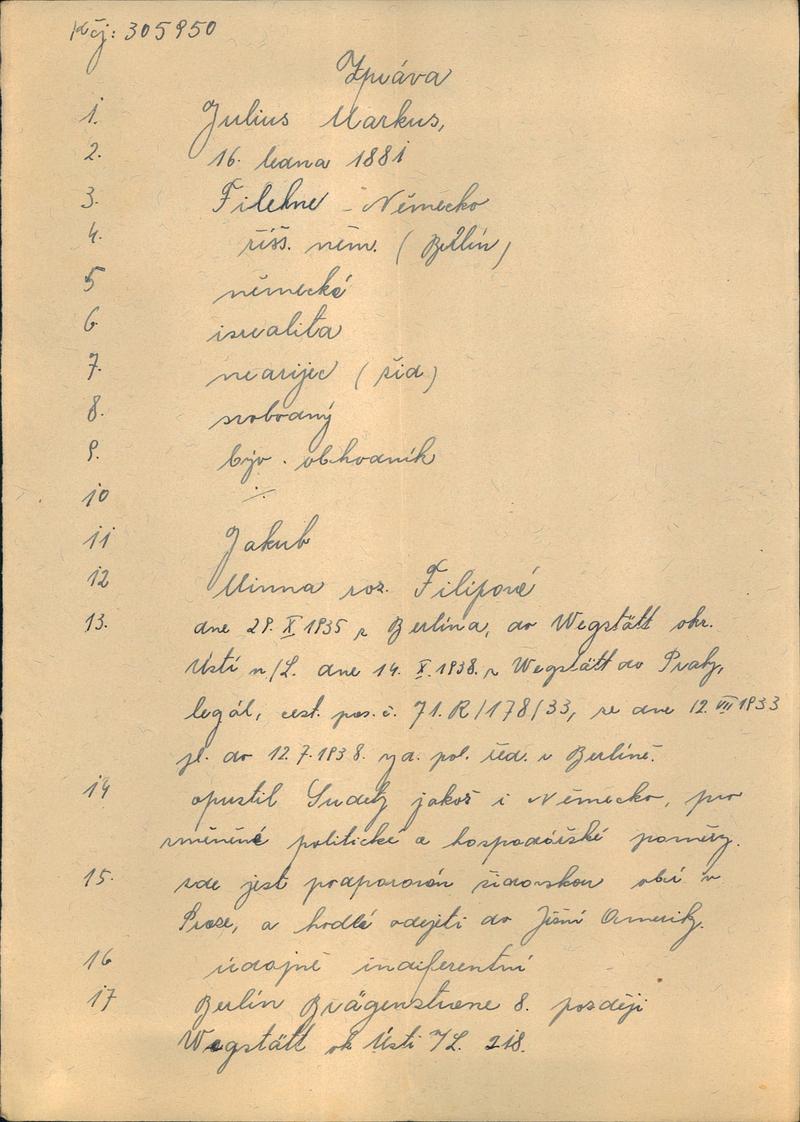 Kčj: 305950
Zpráva
1. Julius Markus,
2. 16. ledna 1881
3. Filehne - Německo
4. říš. něm. (Berlín)
5 německá
6. israelita
7. nearijec (žid)
8. svobodný
9. býv. obchodník
10 ./.
11 Jakub
12 Minna roz. Filipová
13. dne 29. X 1935 z Berlína, do Wegstätt okr.
Ústí n/L. dne 14. X. 1938. z Wegstätt do Prahy,
legál, cest. pas. č. 71. R/178/33, ze dne 12. VII 1933
pl. do 12.7.1938. vyd. pol. řed. v Berlíně.
14 opustil Sudety jakož i Německo, pro
změněné politické a hospodářské poměry.
15. zde jest podporován židovskou obcí v
Praze, a hodlá odejeti do Jižní Ameriky.
16 údajně indiferentní
17 Berlín 8. později
Wegstätt ok Ústí /L. 218.